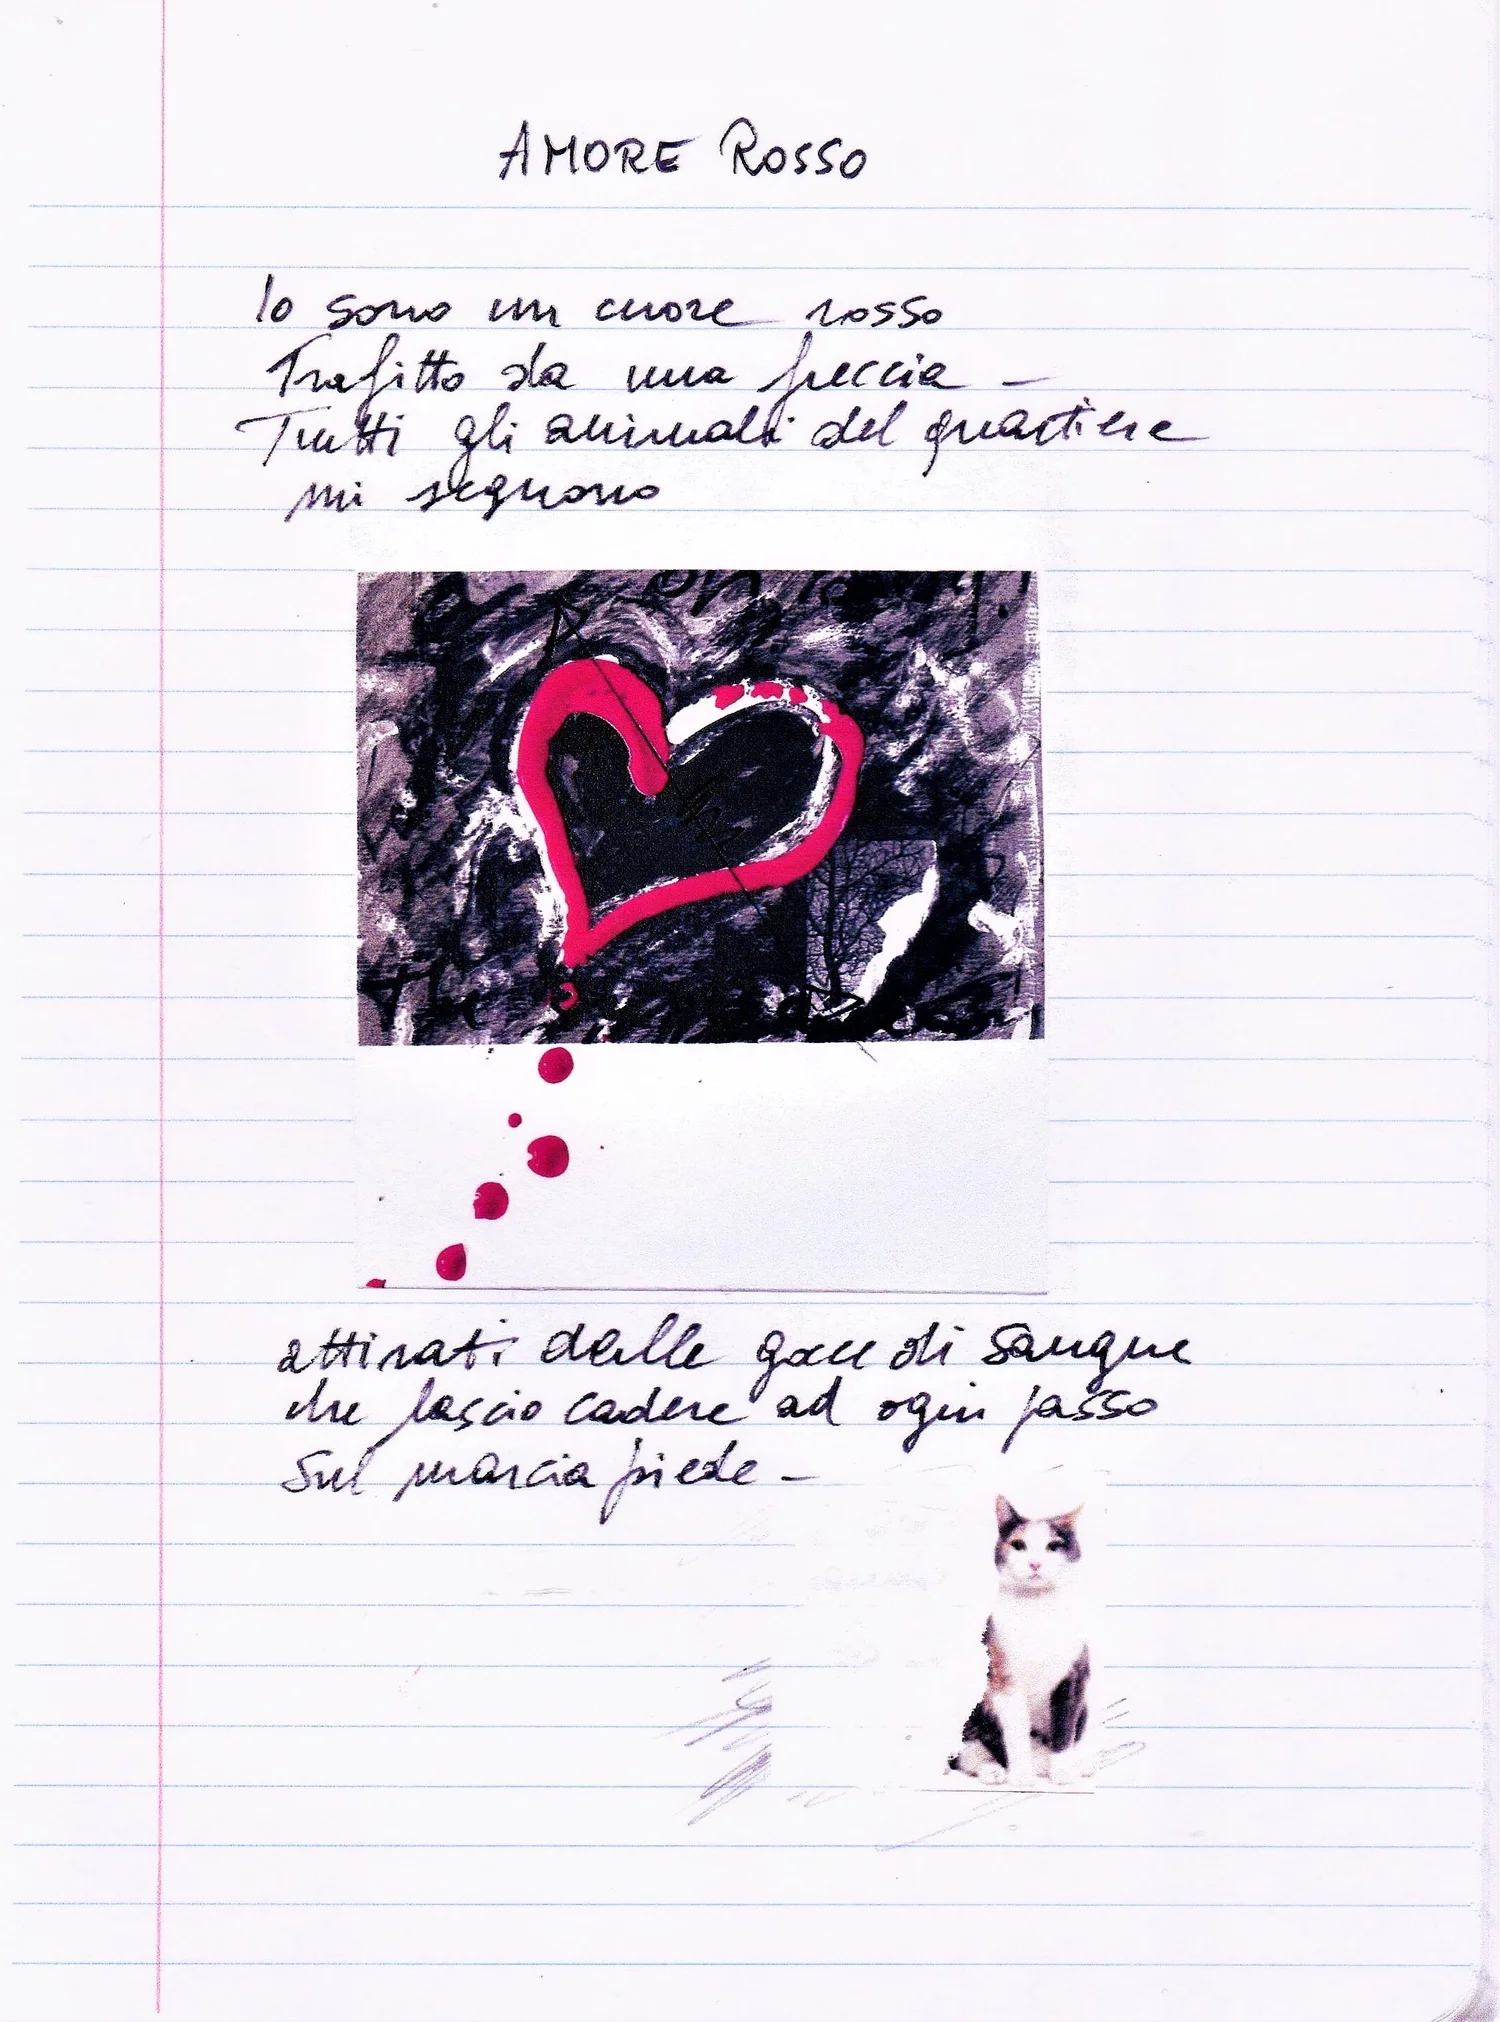 AMORE ROSSO
Io sono un cuore rosso
Trafitto da una freccia –
Tutti gli animali del quartiere
mi seguono
attirati dalle gocce di sangue
che lascio cadere ad ogni passo
sul marciapiede –